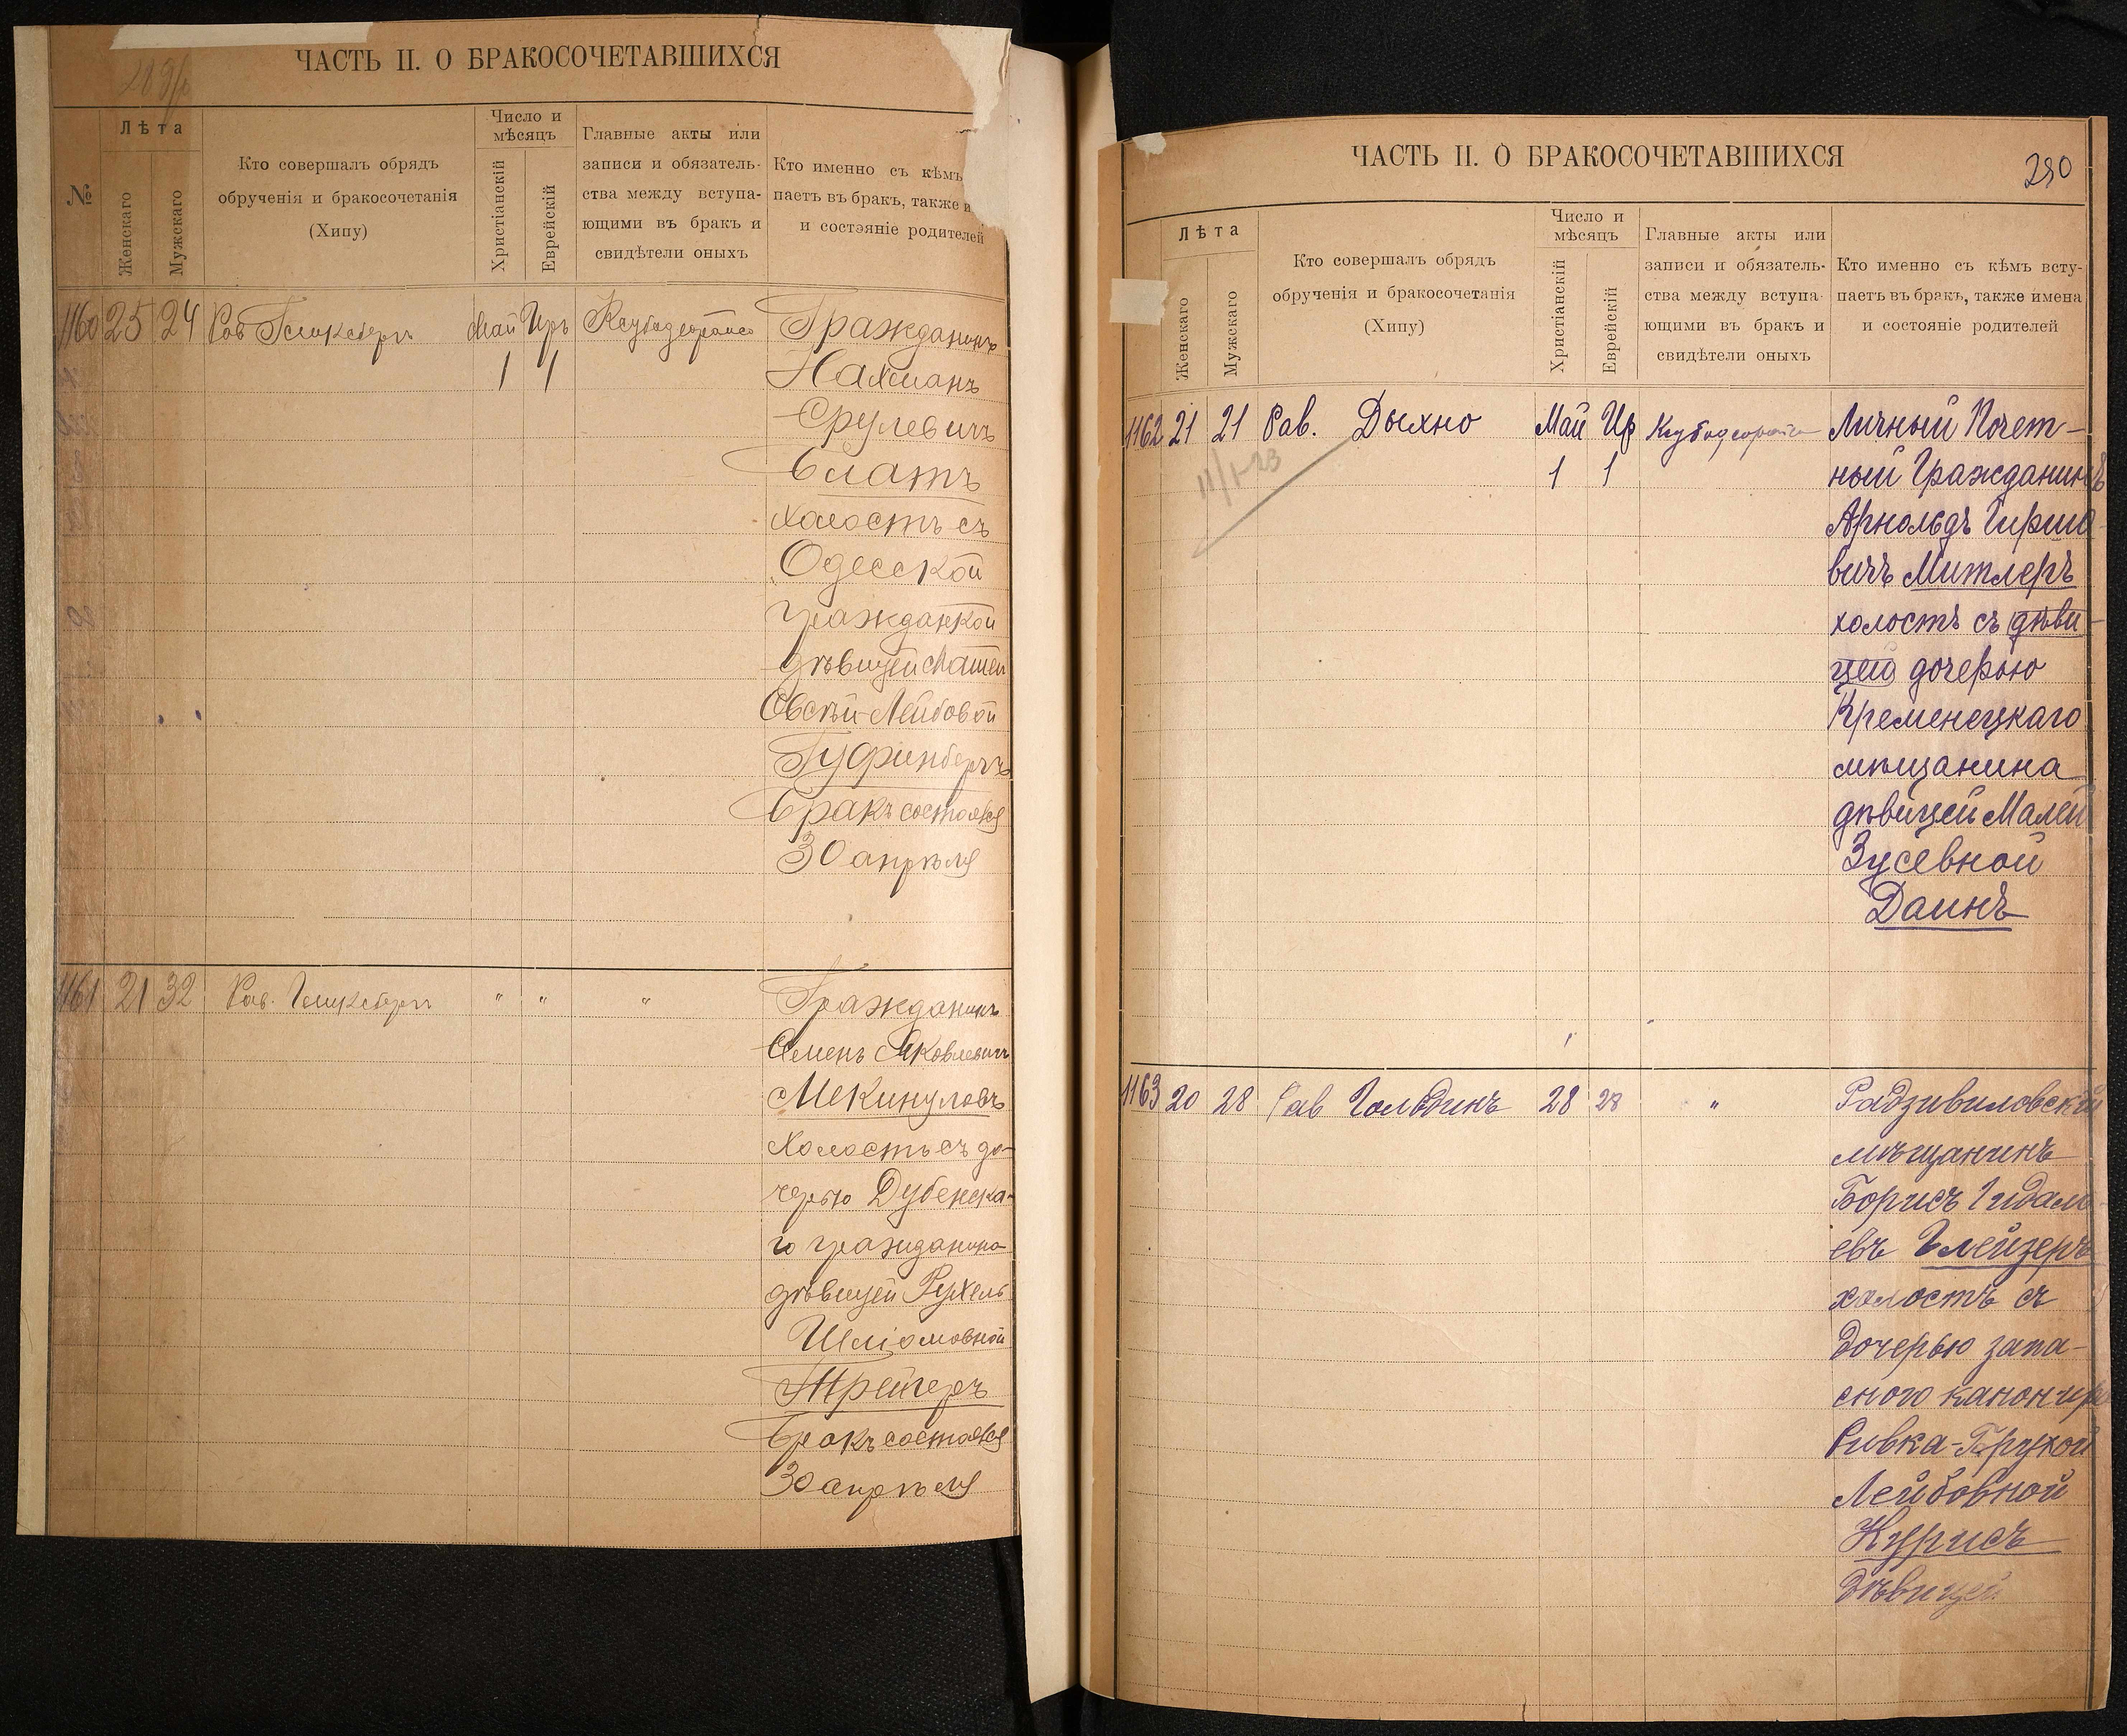 ЧАСТЬ II. О БРАКОСОЧЕТАВШИХСЯ
№
Лѣта
Женскаго
Мужскаго
Кто совершалъ обрядъ
обрученія и бракосочетанія
(Хипу)
Число и
мѣсяцъ
Христіанскій
Еврейскій
Главные акты или
записи и обязатель-
ства между вступа-
ющими въ бракъ и
свидѣтели оныхъ
Кто именно съ кѣмъ
паетъ въ бракъ, также и
и состояніе родителей
1160 25 24 Рав Май Иръ Гражданинъ
1 1 Нахманъ
Срулевичъ
Блатъ
холостъ съ
Одесской
гражданкой
дѣвицей
Лейбовой
Гуфинбергъ
Бракъ состоялся
30 апрѣля
1161 21 32 Рав. " " " Гражданинъ
Семенъ Яковлевичъ
Мекинуловъ
холостъ съ до-
черью Дубенска-
го гражданина
дѣвицей Рухель
Шліомовной
Трейгеръ
Бракъ состоялся
30 апрѣля
ЧАСТЬ II. О БРАКОСОЧЕТАВШИХСЯ
280
Лѣта
Женскаго
Мужскаго
Кто совершалъ обрядъ
обрученія и бракосочетанія
(Хипу)
Число и
мѣсяцъ
Христіанскій
Еврейскій
Главные акты или
записи и обязатель-
ства между вступа-
ющими въ бракъ и
свидѣтели оныхъ
Кто именно съ кѣмъ всту-
паетъ въ бракъ, также имена
и состояніе родителей
1162 21 21 Рав. Дыхно Май Ир Личный Почет-
1 1 ный Гражданинъ
Арнольдъ Гиршо-
вичъ Митлеръ
холостъ съ дѣви-
цей дочерью
Кременецкаго
мѣщанина
дѣвицей Малей
Зусевной
Даинъ
1163 20 28 Рав Гольдинъ 28 28 " Радзивиловскій
мѣщанинъ
Борисъ Гидаль-
евъ Глейзеръ
холостъ съ
дочерью запа-
сного канонира
Ривка-Брухой
Лейбовной
Курисъ
дѣвицей